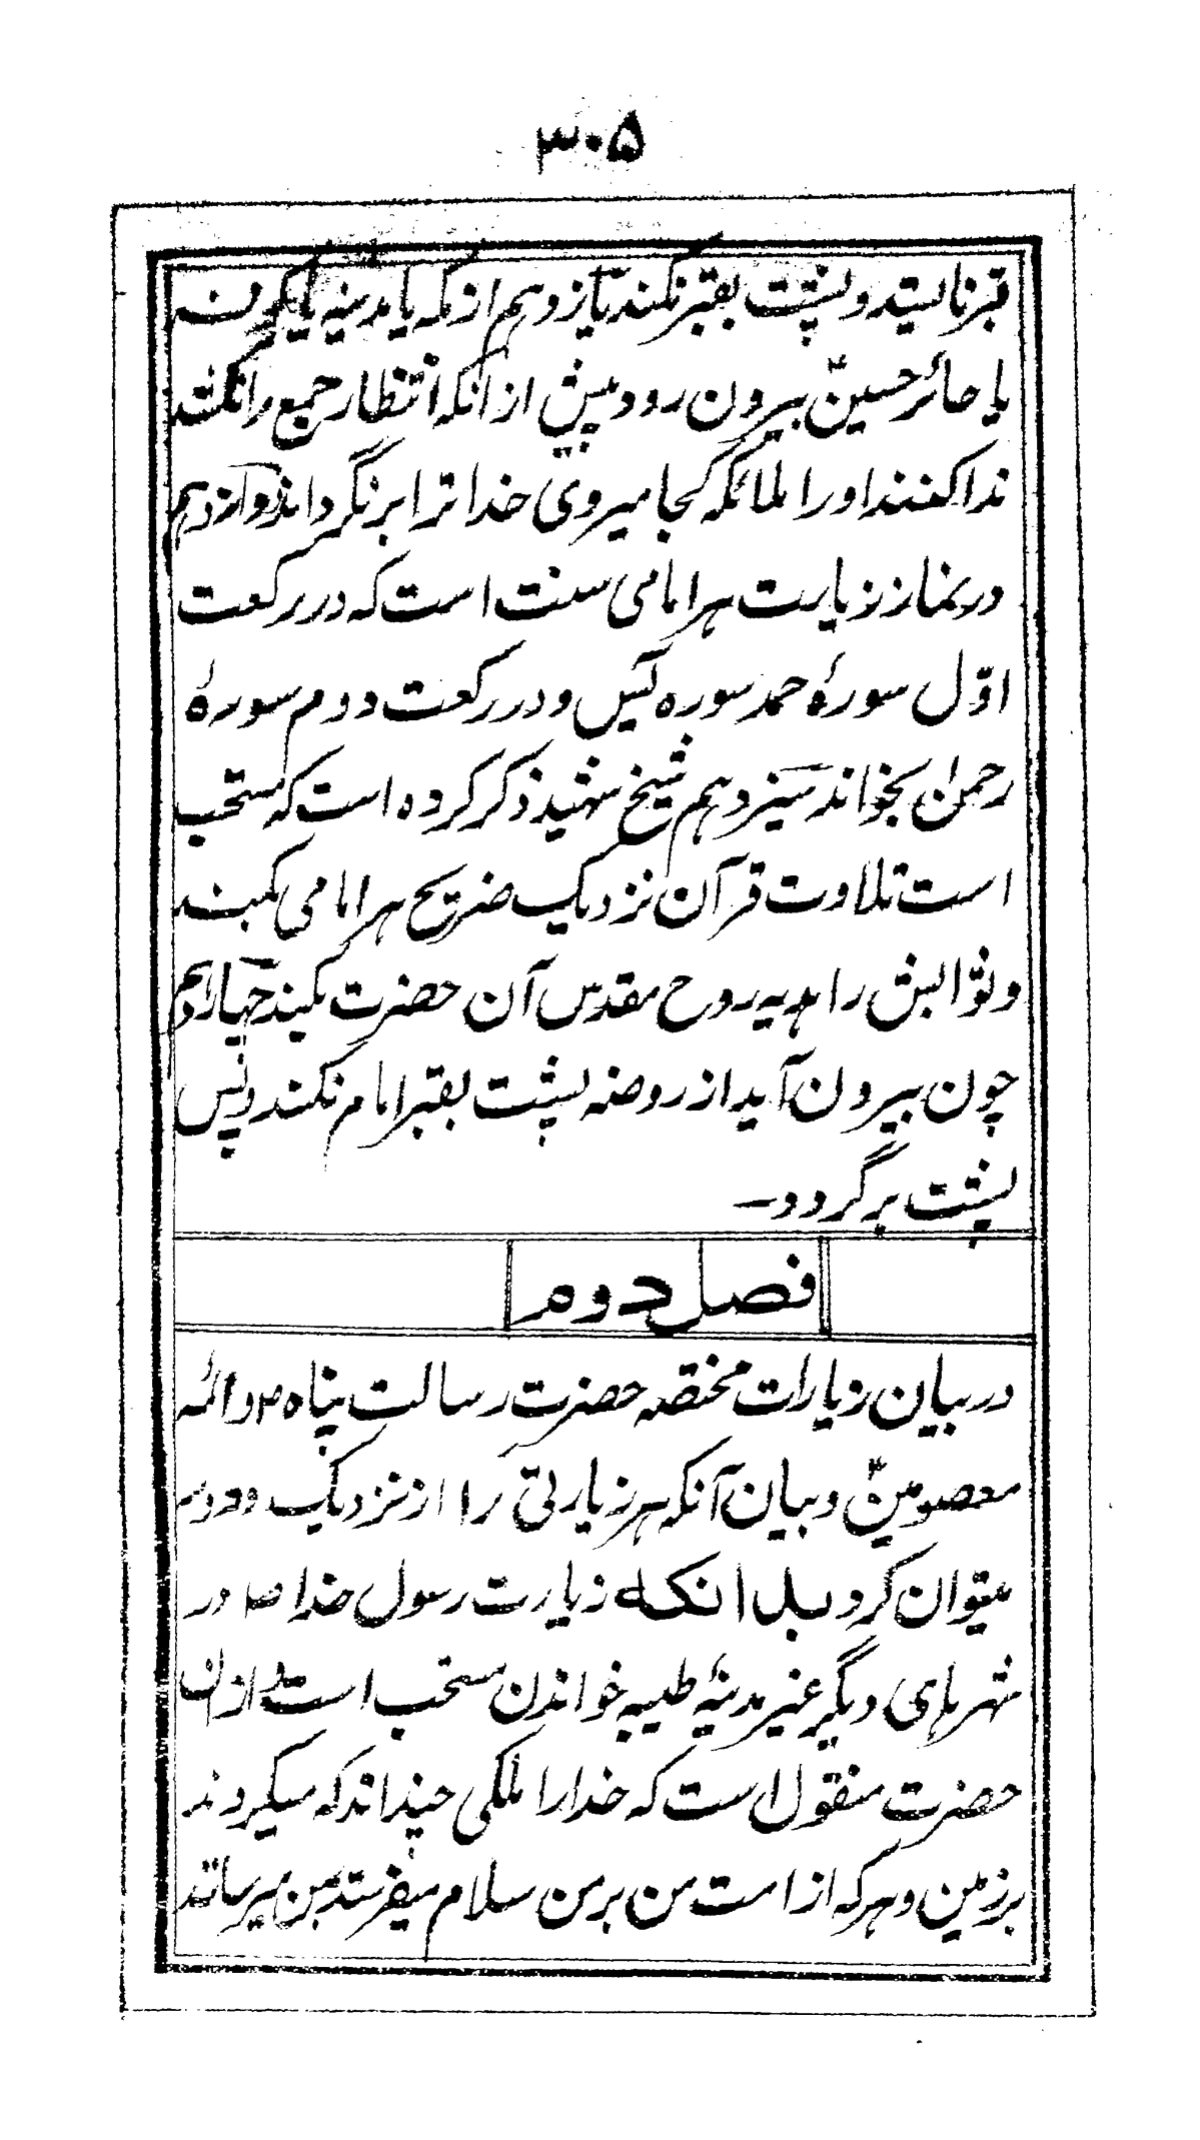 ۳۰۵
قبر نایستد و پشت بقبر نکند یازدهم از مکه یا مدینه یا
یا حائر حسینؑ بیرون رود پیش از آنکه انتظار جمع را نکشد
ندا کنند اورا ملائکه کجا میروی خدا ترا برنگرداند دوازدهم
در نماز زیارت هر امامی سنت است که در رکعت
اوّل سورۂ حمد سوره یٰس و در رکعت دوم سورۂ
رحمن بخواند سیزدهم شیخ شهید ذکر کرده است که مستحب
است تلاوت قرآن نزدیک ضریح هر امامی بکند
و ثوابش را هدیه روح مقدس آن حضرت بکند چهاردهم
چون بیرون آید از روضه پشت بقبر امام نکند و پس
پشت برگردد ــ
فصل دوم
در بیان زیارات مختصه حضرت رسالت پناه ص و ائمه
معصومینؑ و بیان آنکه هر زیارتی را از نزدیک و دور
میتوان کرد بدانکه زیارت رسول خدا ص در
شهرهای دیگر غیر مدینۂ طیبه خواندن مستحب است و از آن
حضرت منقول است که خدا را ملکی چند اند که میگردند
بر زمین و هر که از امت من بر من سلام میفرستد بمن میرسانند